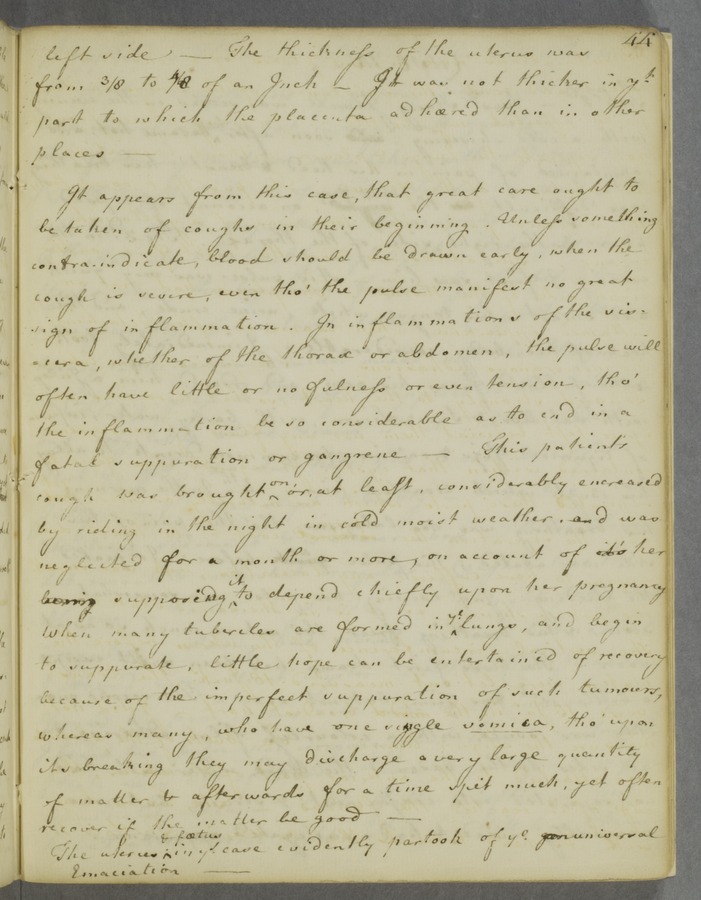 44
left side — The thickness of the uterus was
from 3/8 to 4/8 of an Inch — It was not thicker in yt
part to which the placenta adhæred than in other
places —
It appears from this case, that great care ought to
be taken of coughs in their beginning. Unless something
contra-indicate, blood should be drawn early, when the
cough is severe, even tho' the pulse manifest no great
sign of inflammation. In inflammations of the vis-
-cera, whether of the thorax or abdomen, the pulse will
often have little or no fulness or even tension, tho'
the inflammation be so considerable as to end in a
fatal suppuration or gangrene — This patient's
cough was brought on or, at least, considerably encreased
by riding in the night in cold moist weather, and was
neglected for a month or more, on account of it's her
being supposing it to depend chiefly upon her pregnancy
When many tubercles are formed in ye lungs, and begin
to suppurate, little hope can be entertained of recovery
because of the imperfect suppuration of such tumours,
whereas many, who have one single vomica, tho' upon
its breaking they may discharge a very large quantity
of matter & afterwards for a time spit much, yet often
recover if the matter be good —
The uterus & fœtus in ys case evidently partook of ye universal
Emaciation —